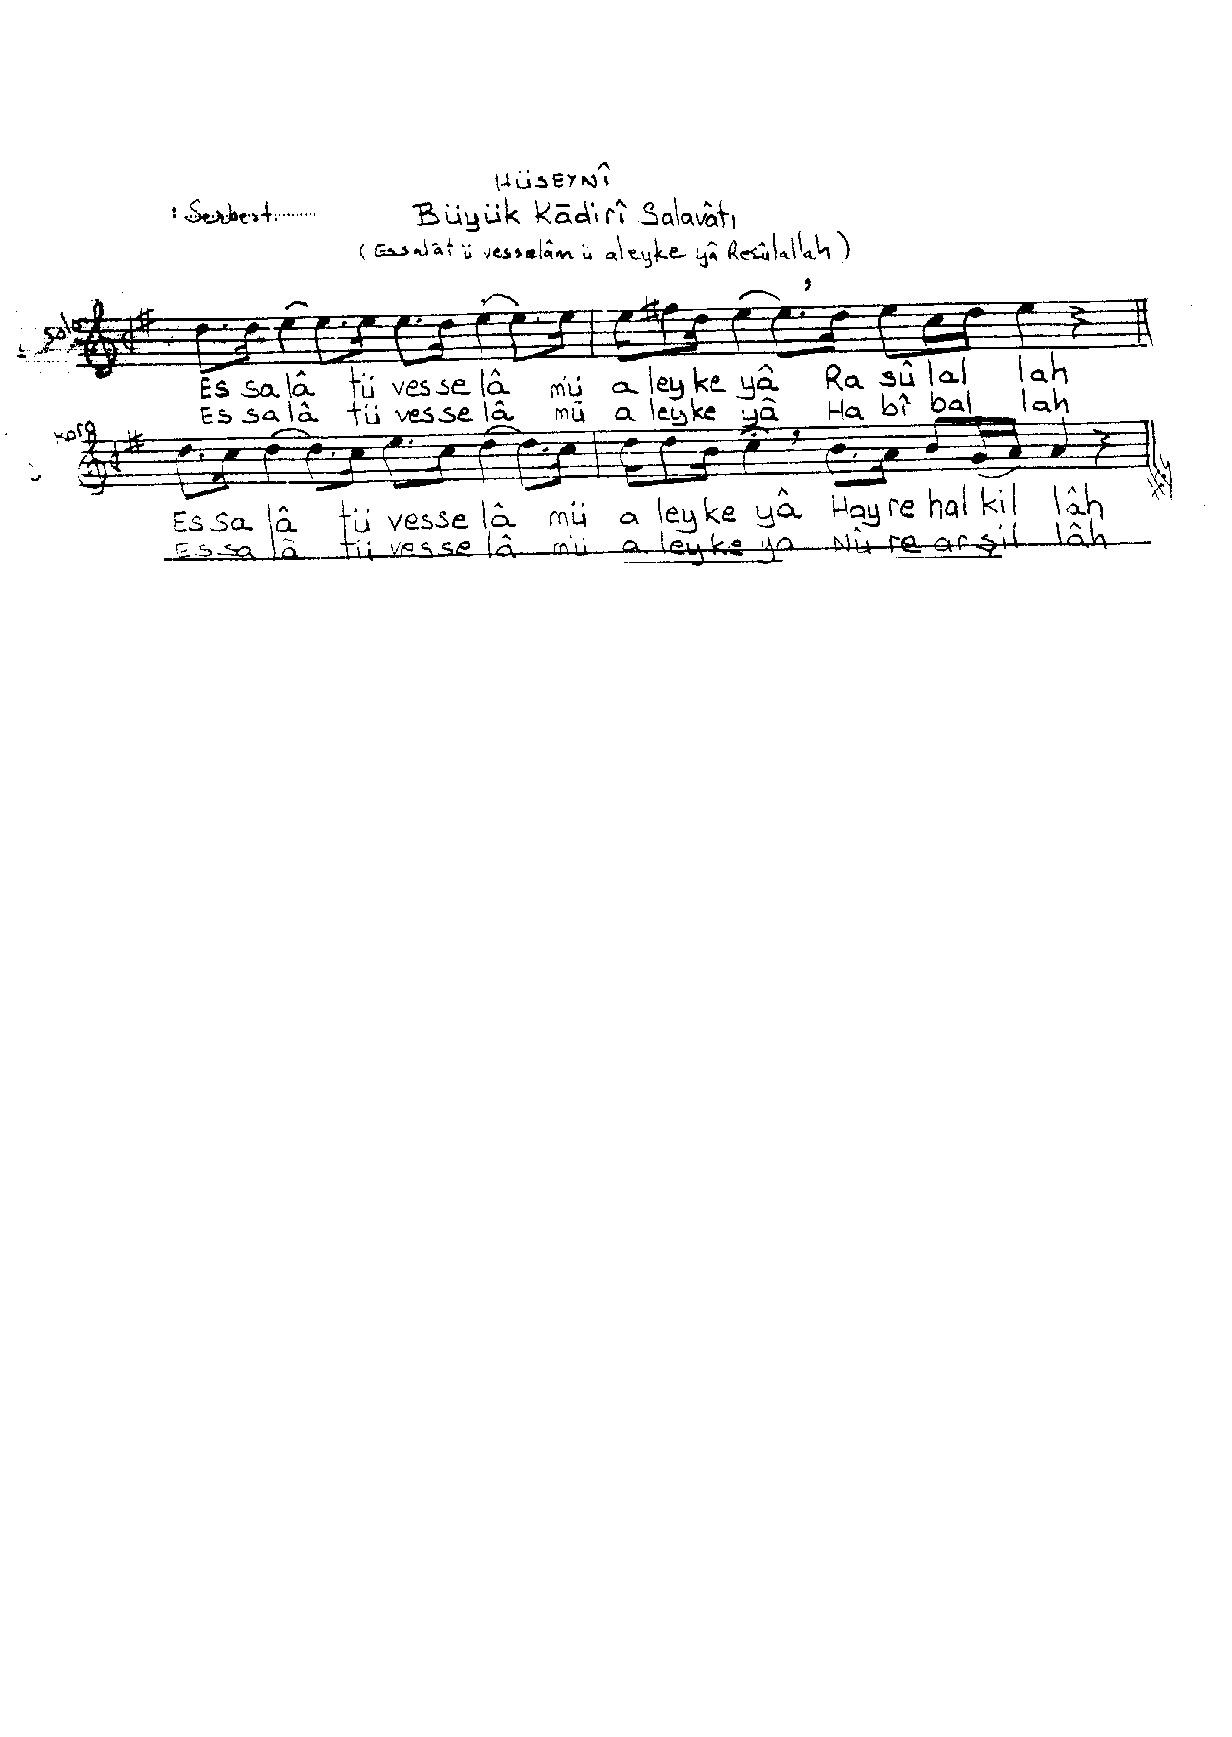 HÜSEYNÎ
: Serbest........
Büyük Kâdirî Salavâtı
(Essalât ü vesselâm ü aleyke yâ Resûlallah)
Solo
Es sa lâ tü ves se lâ mü a ley ke yâ Ra sû lal lah
Es sa lâ tü ves se lâ mü a ley ke yâ Ha bî bal lah
Koro
Es sa lâ tü ves se lâ mü a ley ke yâ Hay re hal kil lâh
Es sa lâ tü ves se lâ mü a ley ke ya Nû re ar şil lâh